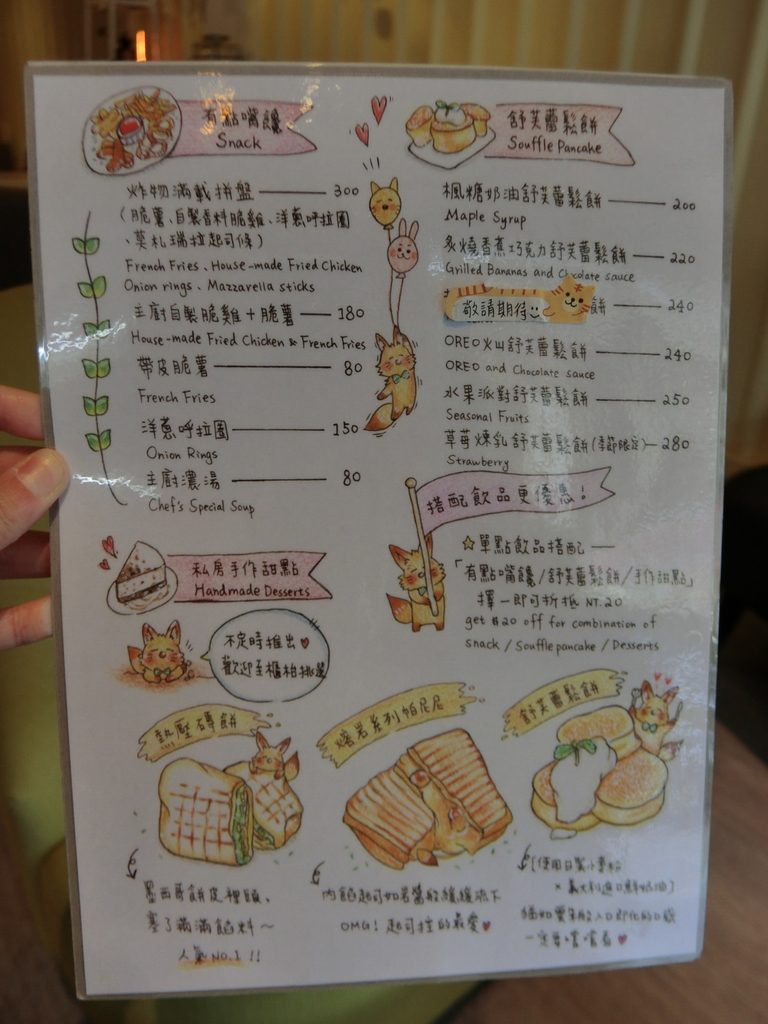 有點嘴饞
Snack
炸物滿載拼盤 300
(脆薯、自製香料脆雞、洋蔥呼拉圈
、莫札瑞拉起司條)
French Fries、House-made Fried Chicken
Onion rings、Mazzarella sticks
主廚自製脆雞+脆薯 180
House-made Fried Chicken & French Fries
帶皮脆薯 80
French Fries
洋蔥呼拉圈 150
Onion Rings
主廚濃湯 80
Chef's Special Soup
舒芙蕾鬆餅
Souffle Pancake
楓糖奶油舒芙蕾鬆餅 200
Maple Syrup
炙燒香蕉巧克力舒芙蕾鬆餅 220
Grilled Bananas and Choclate sauce
敬請期待 餅 240
OREO火山舒芙蕾鬆餅 240
OREO and Chocolate sauce
水果派對舒芙蕾鬆餅 250
Seasonal Fruits
草莓煉乳舒芙蕾鬆餅(季節限定) 280
Strawberry
搭配飲品更優惠!
☆單點飲品搭配
「有點嘴饞/舒芙蕾鬆餅/手作甜點」
擇一即可折抵 NT.20
get $20 off for combination of
snack / Souffle pancake / Desserts
私房手作甜點
Handmade Desserts
不定時推出♥
歡迎至櫃檯挑選
熱壓磚餅
墨西哥餅皮裡頭、
塞了滿滿餡料~
人氣 NO.1 !!
熔岩系列帕尼尼
內餡起司如岩漿般緩緩流下
OMG! 起司控的最愛♥
舒芙蕾鬆餅
(使用日製小麥粉
× 義大利進口鮮奶油)
綿如雲朵般入口即化的口感
一定要嚐嚐看♥